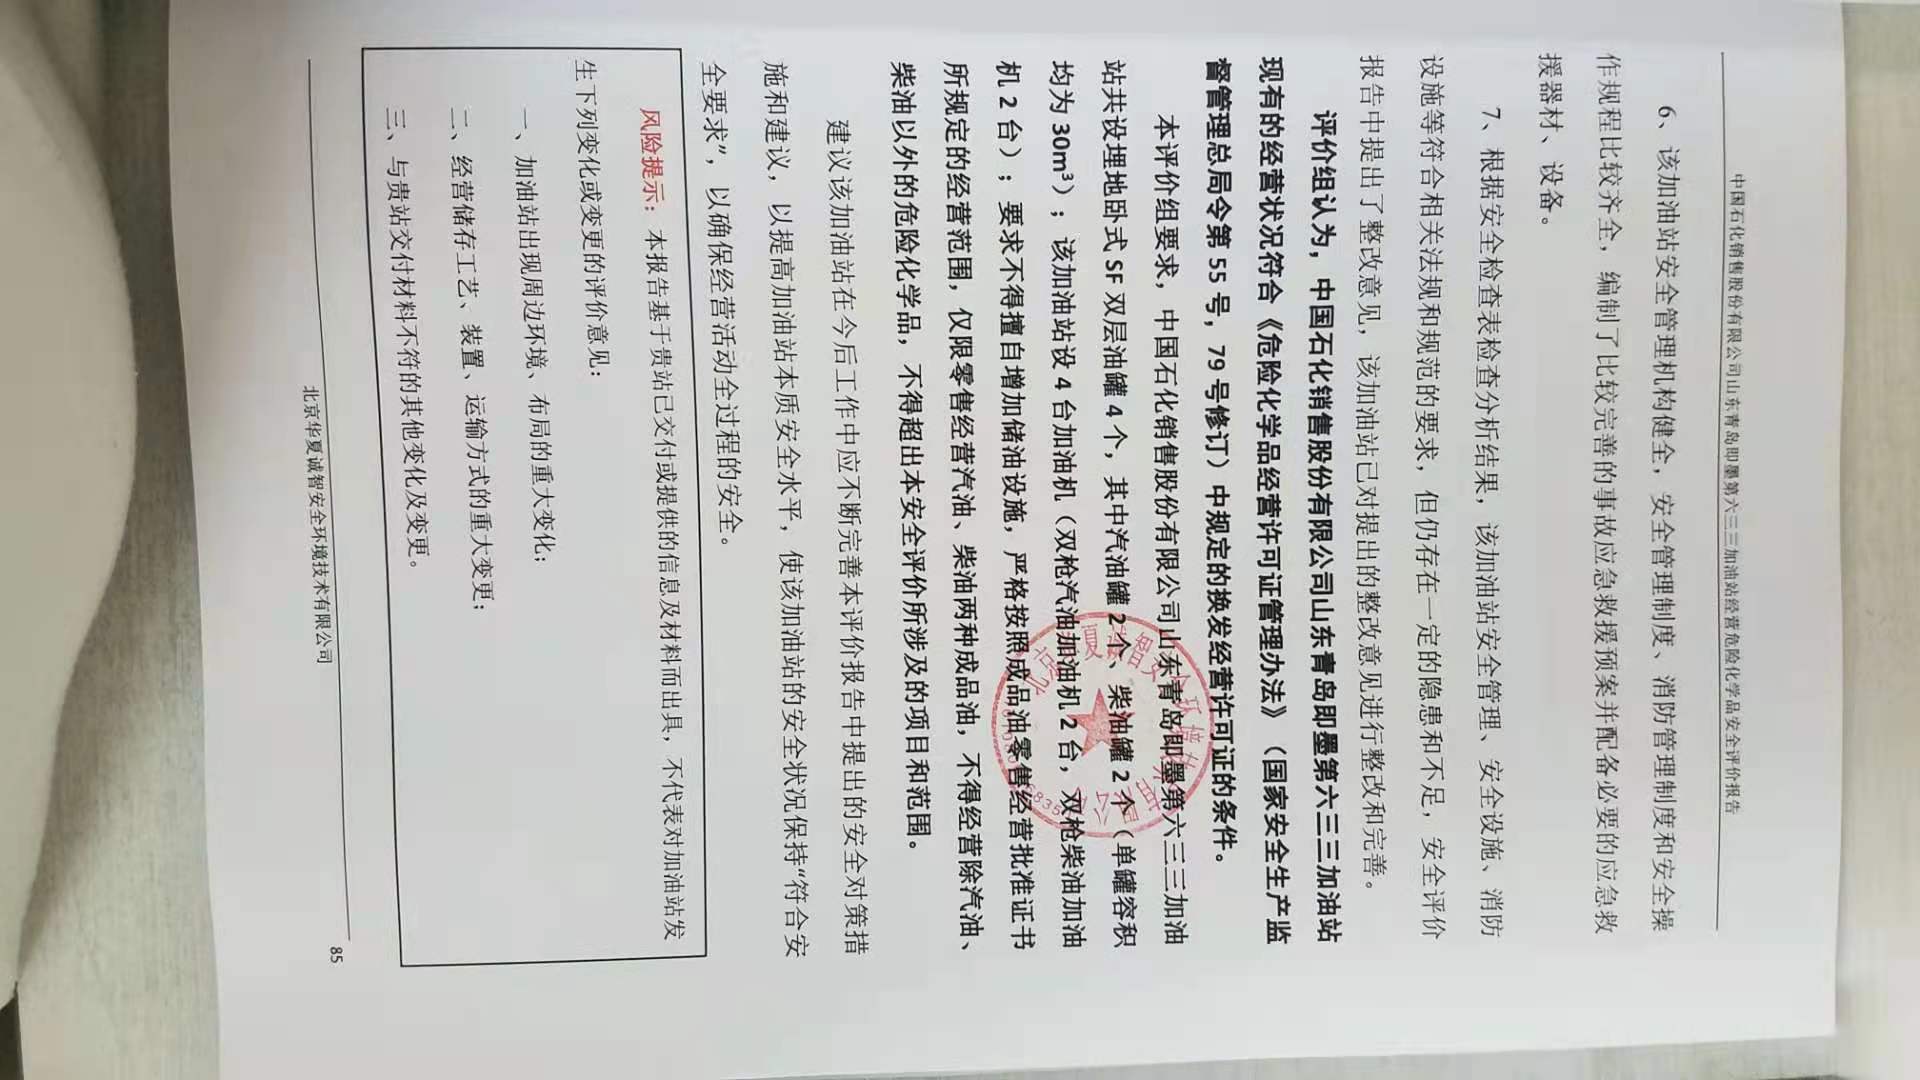 中国石化销售股份有限公司山东青岛即墨第六三三加油站经营危险化学品安全评价报告
6、该加油站安全管理机构健全，安全管理制度、消防管理制度和安全操
作规程比较齐全，编制了比较完善的事故应急救援预案并配备必要的应急救
援器材、设备。
7、根据安全检查表检查分析结果，该加油站安全管理、安全设施、消防
设施等符合相关法规和规范的要求，但仍存在一定的隐患和不足，安全评价
报告中提出了整改意见，该加油站已对提出的整改意见进行整改和完善。
评价组认为，中国石化销售股份有限公司山东青岛即墨第六三三加油站
现有的经营状况符合《危险化学品经营许可证管理办法》（国家安全生产监
督管理总局令第 55 号，79 号修订）中规定的换发经营许可证的条件。
本评价组要求，中国石化销售股份有限公司山东青岛即墨第六三三加油
站共设埋地卧式 SF 双层油罐 4 个，其中汽油罐 2 个、柴油罐 2 个（单罐容积
均为 30m³）；该加油站设 4 台加油机（双枪汽油加油机 2 台，双枪柴油加油
机 2 台）；要求不得擅自增加储油设施，严格按照成品油零售经营批准证书
所规定的经营范围，仅限零售经营汽油、柴油两种成品油，不得经营除汽油、
柴油以外的危险化学品，不得超出本安全评价所涉及的项目和范围。
建议该加油站在今后工作中应不断完善本评价报告中提出的安全对策措
施和建议，以提高加油站本质安全水平，使该加油站的安全状况保持“符合安
全要求”，以确保经营活动全过程的安全。
风险提示：本报告基于贵站已交付或提供的信息及材料而出具，不代表对加油站发
生下列变化或变更的评价意见：
一、加油站出现周边环境、布局的重大变化；
二、经营储存工艺、装置、运输方式的重大变更；
三、与贵站交付材料不符的其他变化及变更。
北京华夏诚智安全环境技术有限公司
85